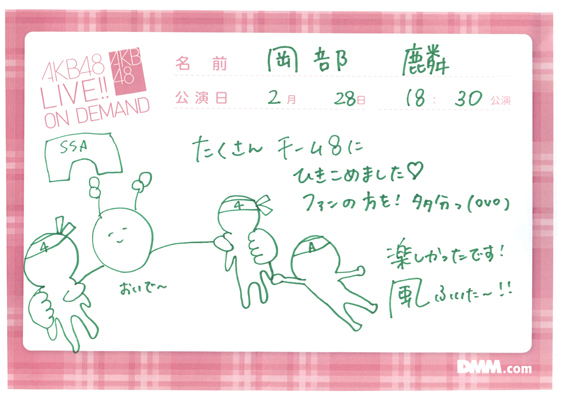 AKB48
LIVE!!
ON DEMAND
AKB
48
名前 岡部 麟
公演日 2月 28日 18:30公演
SSA
たくさん チーム8に
ひきこめました♡
ファンの方を! 多分っ(ovo)
4
4
A
おいで〜
楽しかったです!
風ふいた〜!!
DMM.com